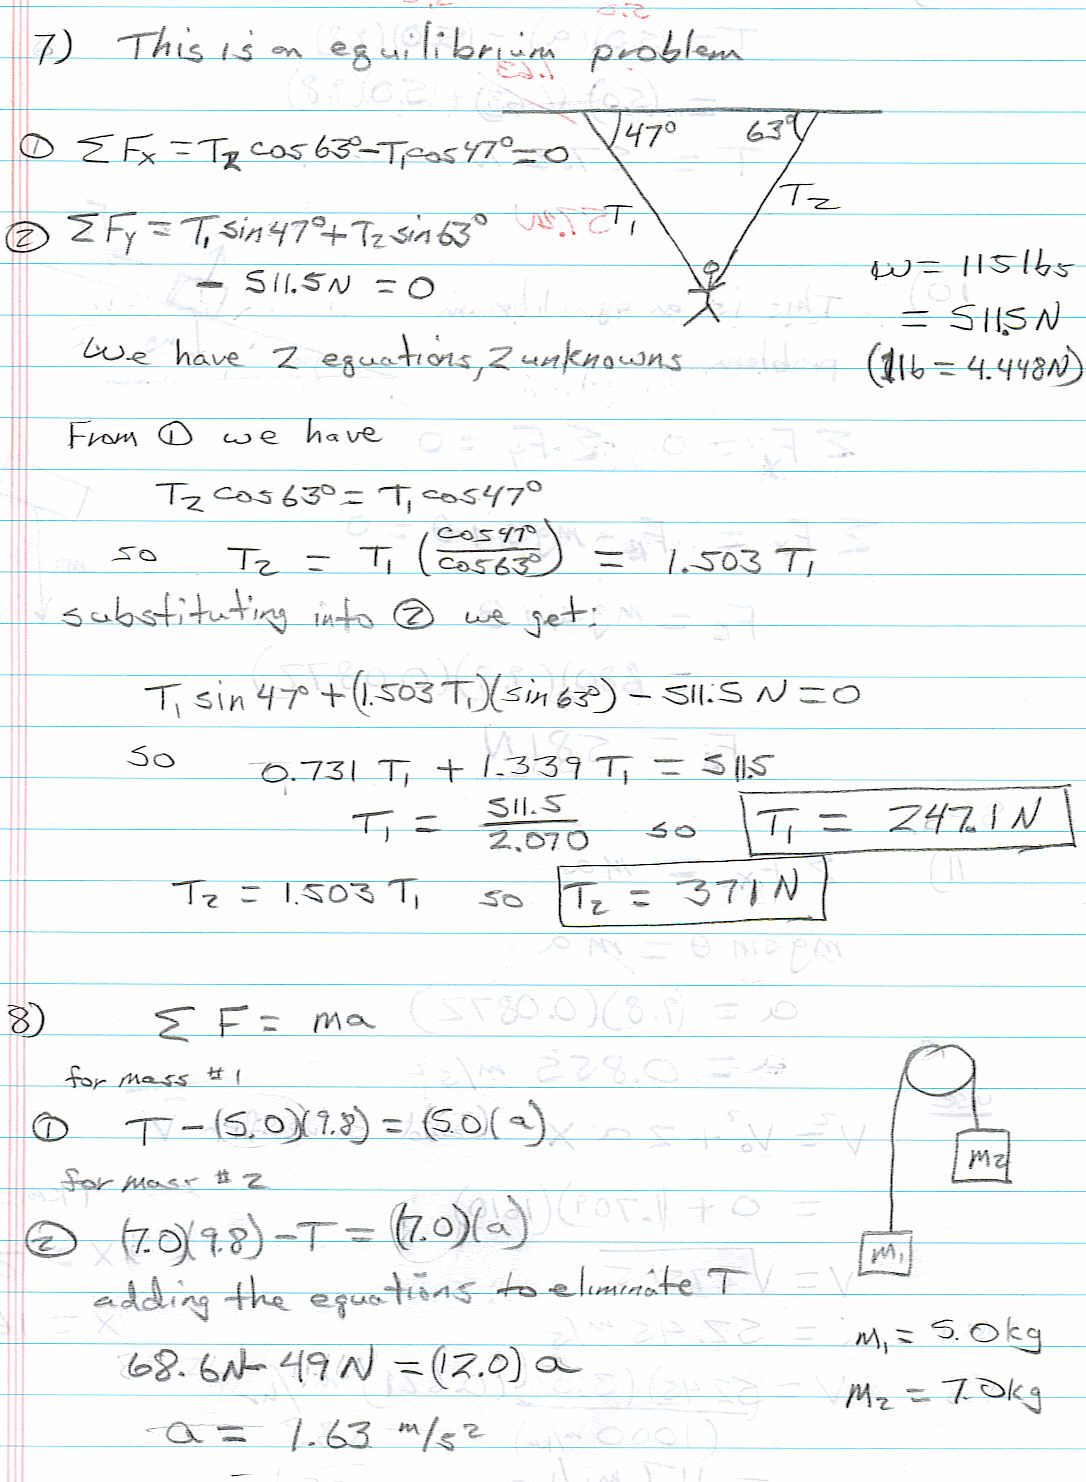 7) This is an equilibrium problem
① ΣFx = T2 cos 63° - T1 cos 47° = 0
47° 63°
T1 T2
② ΣFy = T1 sin 47° + T2 sin 63°
- 511.5 N = 0
w = 115 lbs
= 511.5 N
(1 lb = 4.448 N)
We have 2 equations, 2 unknowns
From ① we have
T2 cos 63° = T1 cos 47°
so T2 = T1 (cos 47° / cos 63°) = 1.503 T1
substituting into ② we get:
T1 sin 47° + (1.503 T1)(sin 63°) - 511.5 N = 0
so 0.731 T1 + 1.339 T1 = 511.5
T1 = 511.5 / 2.070 so T1 = 247.1 N
T2 = 1.503 T1 so T2 = 371 N
8) Σ F = ma
for mass #1
① T - (5.0)(9.8) = (5.0(a)
for mass #2
② (7.0)(9.8) - T = (7.0)(a)
adding the equations to eliminate T
68.6 N - 49 N = (12.0) a
a = 1.63 m/s²
m2
m1
m1 = 5.0 kg
m2 = 7.0 kg